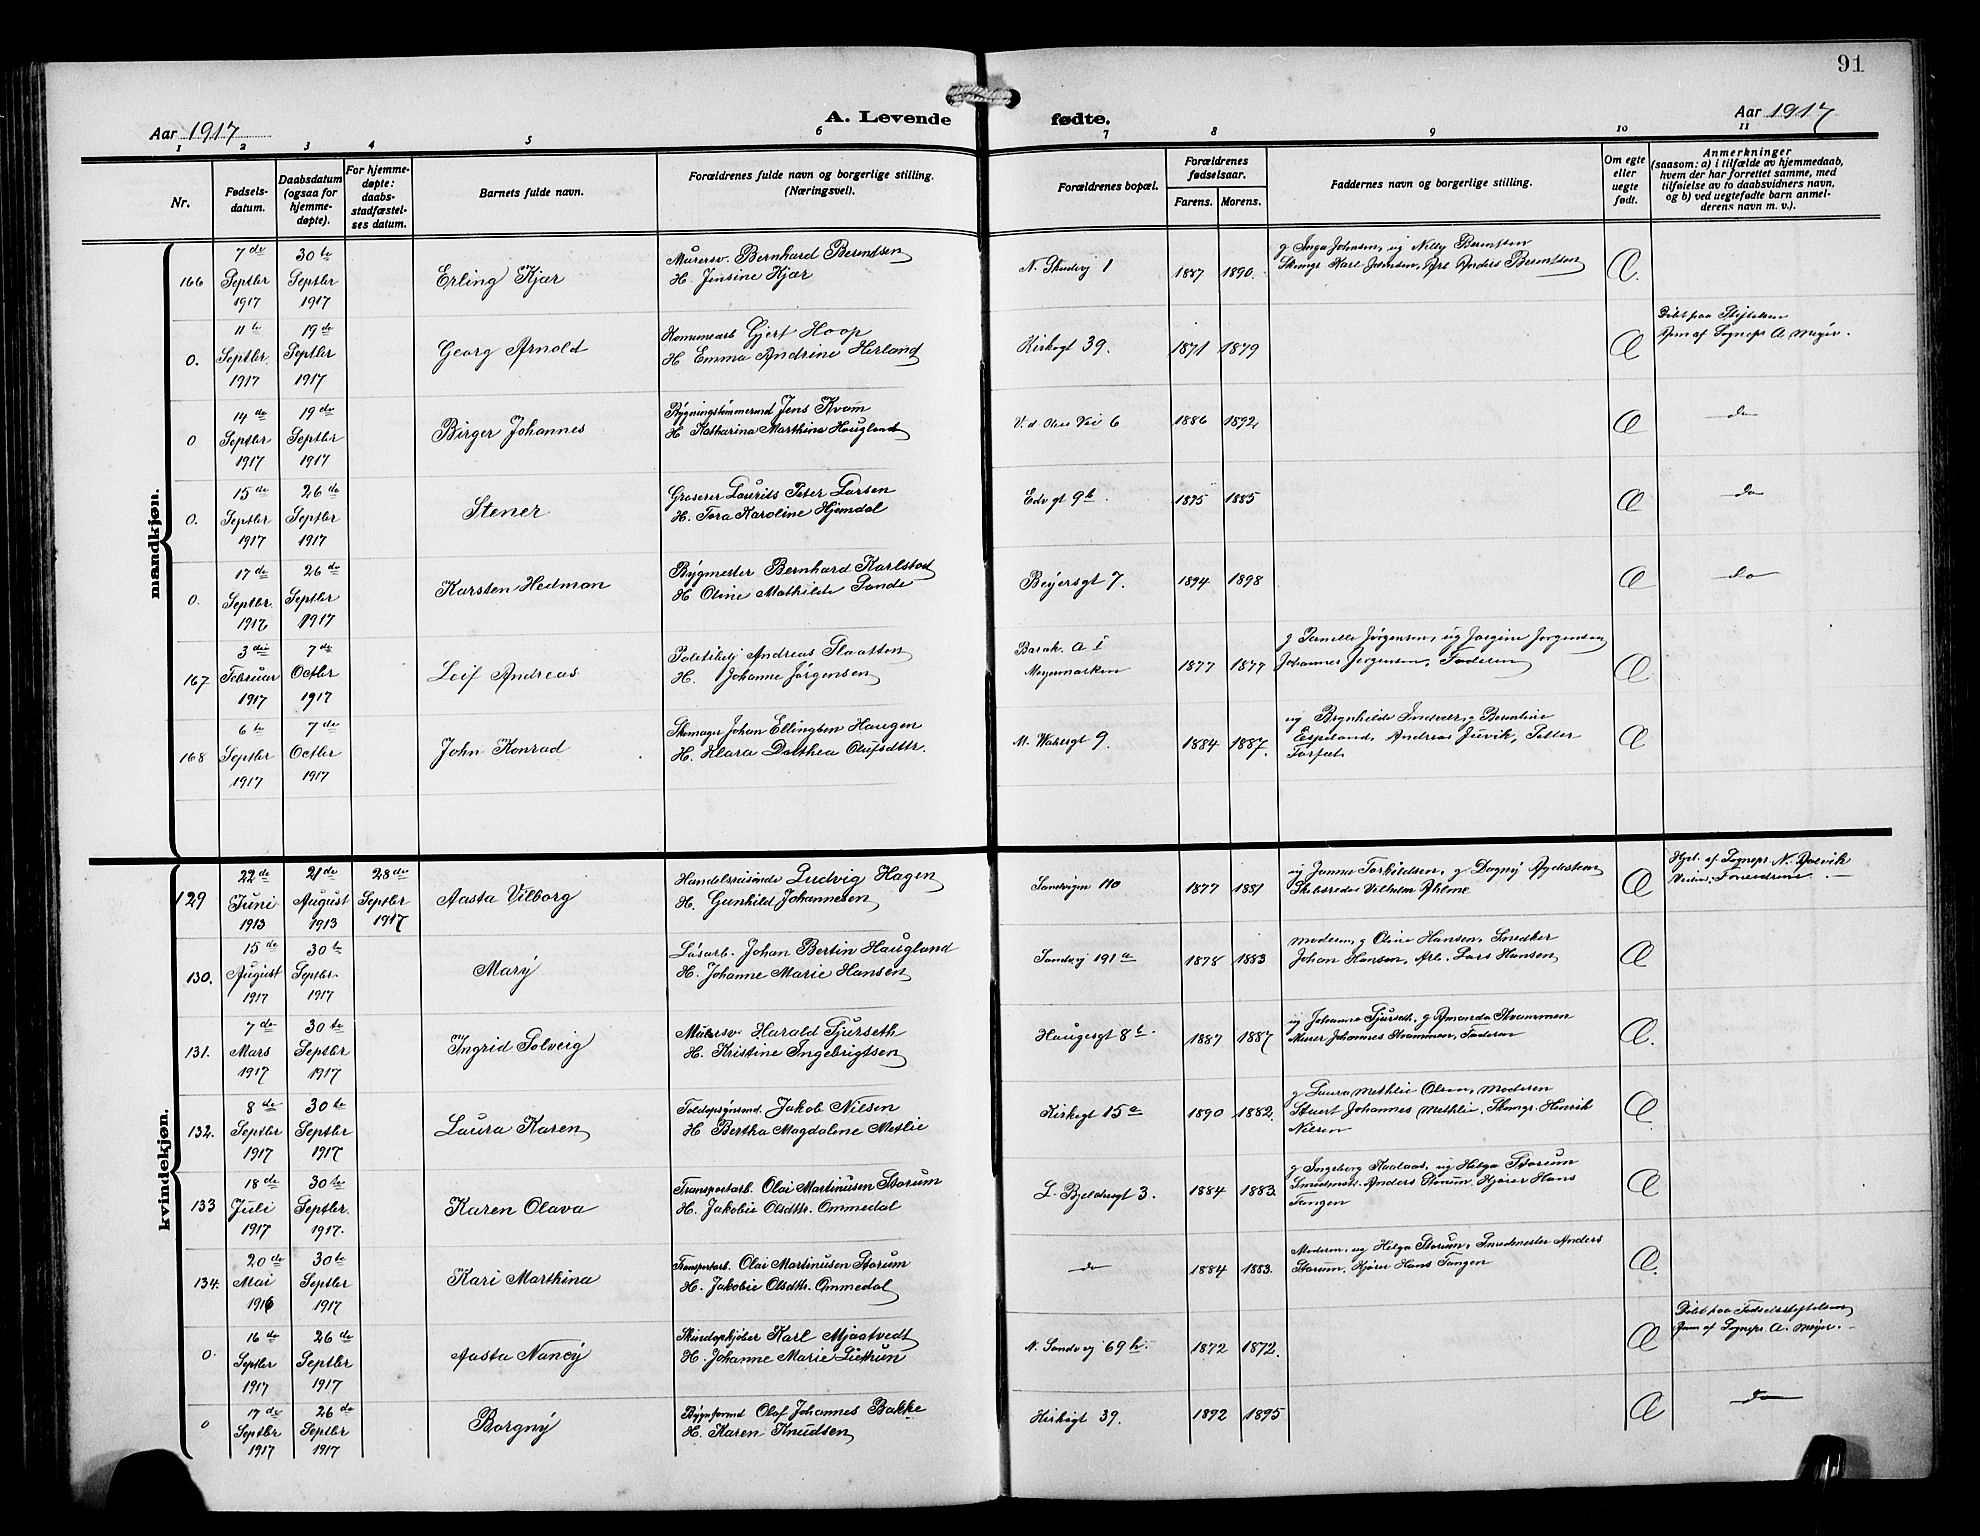 91
Aar 1917
A. Levende fødte.
Aar 1917
1 2 3 4 5 6 7 8 9 10 11
Nr.
Fødsels-
datum.
Daabsdatum
(ogsaa for
hjemme-
døpte).
For hjemme-
døpte:
daabs-
stadfæstel-
ses datum.
Barnets fulde navn.
Forældrenes fulde navn og borgerlige stilling.
(Næringsvei).
Forældrenes bopæl.
Forældrenes
fødselsaar.
Farens. Morens.
Faddernes navn og borgerlige stilling.
Om egte
eller
uegte
født.
Anmerkninger
(saasom: a) i tilfælde av hjemmedaab,
hvem der har forrettet samme, med
tilføielse av to daabsvidners navn,
og b) ved uegtefødte barn anmel-
derens navn m. v.).
mandkjøn.
166
7de
Septbr
1917
30te
Septbr
1917
Erling Kjær
Murersv. Bernhard Berntsen
H. Jensine Kjær
1887 1890.
g Inga Johnsen, ug Nelly Berentsen
Æ.
0.
11te
Septbr
1917
19de
Septbr
1917
Georg Arnold
Komunearb Gjert Hoop
H Emma Andrine Herland
Kirkegt 39.
1871 1879
Æ
Døbt paa Stiftelsen
Anm af Sognepr A. Meyer.
0
14de
Septbr
1917
19de
Septbr
1917
Birger Johannes
Bygningstømmermd Jens Kvam
H Katharina Marthina Haugland
1886 1892
Æ
do
0.
15de
Septbr
1917
26de
Septbr
1917
Stener
Groserer Laurits Peter Larsen
H. Tora Karoline Hjemdal
Edv gt 9b
1875 1885
Æ
do
0.
17de
Septbr
1917
26de
Septbr
1917
Karsten Hedman
Bygmester Bernhard Karlstad
H Oline Mathilde Sande
Beyersgt 7.
1894 1898
Æ
do
167
3die
Februar
1917
7de
Octbr
1917
Leif Andreas
Politibetj Andreas Slaatten
H. Johanne Jørgensen
Barak. A I
Meyermarken
1877 1877
g Pernille Jørgensen, ug Jørgine Jørgensen
Johannes Jørgensen, Faderen
Æ
168
6te
Septbr
1917
7de
Octbr
1917
John Konrad
Skomager Johan Ellingsen Haugen
H. Klara Dorthea Olufsdttr.
1884 1887.
Espeland, Andreas Juvik, Petter
Æ
kvindekjøn.
129
22de
Juni
1913
21de
August
1913
28de
Septbr
1917
Aasta Vilborg
Handelsreisende Ludvig Hagen
H. Gunhild Johannesen
Sandvigen 110
1877 1881
Skibsreder Vilhelm Ahlme
Æ
130.
15de
August
1917
30te
Septbr.
1917
Mary
Løsarb. Johan Bertin Haugland
H. Johanne Marie Hansen
Sandvj 191a
1878 1883
Moderen, g Oline Hansen, Snedker
Johan Hansen, Arb. Lars Hansen
Æ
131.
7de
Mars
1917
30te
Septbr
1917
Ingrid Solveig
Mursv. Harald Tjurseth
H. Kristine Ingebrigtsen
Haugesgt 8b.
1887 1887
ug Johanna Tjurseth, g Amanda Strammen
Murer Johannes Strammen, Faderen
Æ.
132.
8de
Septbr
1917
30te
Septbr
1917
Laura Karen
Toldopsynsmd. Jakob Nilsen
H Bertha Magdalene Metlie
Kirkegt 15a
1890 1882.
g Laura Methlie Olsen, Moderen
Stuert Johannes Methlie, Skomgr. Henrik
Nilsen
Æ
133
18de
Juli
1917
30te
Septbr.
1917.
Karen Olava
Transportarb. Olai Martinusen Storum
H. Jakobie Olsdttr. Ommedal
1884 1883.
g Ingeborg Kaalaas, ug Helga Storum
Smedmest. Anders Storum, Kjører Hans
Tangen
Æ
134.
20de
Mai
1916
30te
Septbr
1917
Kari Marthina
Transportarb. Olai Martinusen Storum
H. Jakobie Olsdttr. Ommedal
do
1884 1883.
Moderen, ug Helga Storum, Smedmester Anders
Storum, Kjører Hans Tangen
Æ.
0
16de
Septbr
1917
26de
Septbr
1917
Aasta Nancy
Skindopkjøber Karl Mjaatvedt
H. Johanne Marie Liethun
N. Sandvj 69b.
1872 1872.
Æ
Døbt paa Fødselsstiftelsen
Anm af Sognepr. A. Meyer.
0
17de
Septbr
1917
26de
Septbr
1917
Borgny
Bygnformd Olaf Johannes Bakke
H. Karen Knudsen
Kirkegt 39.
1892 1895
Æ
do